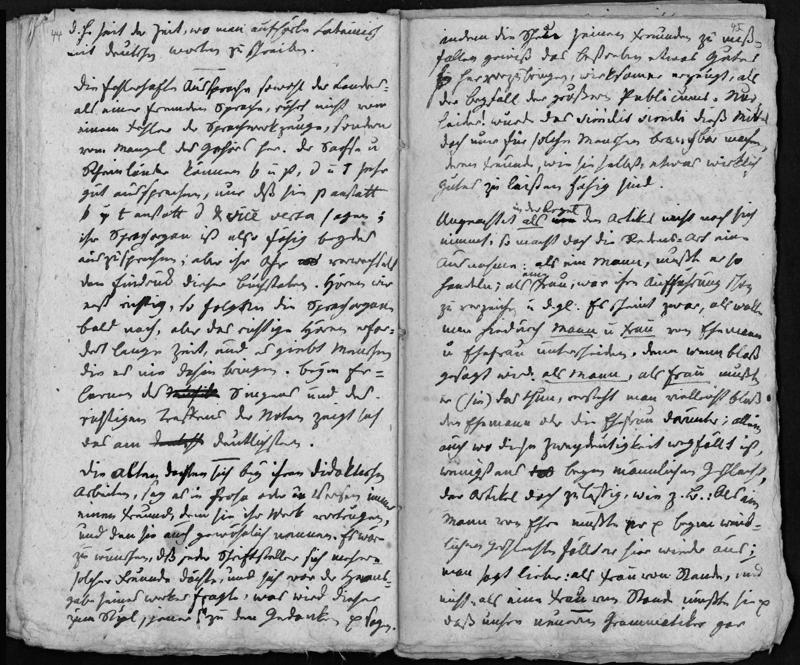 44
d. h. seit der Zeit, wo man aufhörte Lateinisch
mit deutschen worten zu schreiben.
Die fehlerhafte Aussprache sowohl der Landes-
als einer fremden Sprache, rührt nicht von
einem Fehler der Sprachwerkzeuge, sondern
vom Mangel des Gehörs her. Der Sachse u
Rheinländer können b u p, d u t sehr
gut aussprechen, nur daß sie p anstatt
b u t anstatt d & vice versa sagen;
ihr Sprachorgan ist also fähig beydes
auszusprechen; aber ihr Ohr verwechselt
den Eindruck dieser buchstaben. Hören wir
erst richtig, so folgten die Sprachorgane
bald nach, aber das richtige Hören erfor-
dert lange Zeit, und es giebt Menschen
die es nie dahin bringen. beym Er-
lernen des Singens und des
richtigen Treffens der Noten zeigt sich
das am deutlichsten.
Die Alten dachten sich bey ihren didaktischen
Arbeiten, sey es in Prosa oder in Versen immer
einen Freund, dem sie ihr Werk vortrugen,
und den sie auch gewöhnlich nennen. Es war
zu wünschen, daß jeder Schriftsteller sich mehrere
solcher Freunde dächte, und sich vor der Heraus-
gabe seines werkes fragte, was wird dieser
zum Styl, jener zu den Gedanken p sagen.
45
indem die Scheu seinen Freunden zu miß-
fallen gewiß das bestreben etwas Gutes
hervorzubringen, wirksamer erzeugt, als
der beyfall des größern Publicums. Nur
leider! würde das dieß Mittel
doch nur für solche Menschen brauchbar machen,
deren Freunde, wie sie selbst, etwas wirklich
Gutes zu leisten fähig sind.
Ungeachtet in der Regel als den Artikel nicht nach sich
nimmt, so macht doch die Redens-Art eine
Ausnahme: als ein Mann, mußte er so
handeln; als eine Frau, war ihre Aufführung
zu verzeihen u. dgl. Es scheint zwar, als wolle
man hiedurch Mann u Frau von Ehemann
u Ehefrau unterscheiden, denn wenn bloß
gesagt wird, als Mann, als Frau mußte
er (sie) das thun, versteht man vielleicht bloß
den Ehemann oder die Ehefrau darunter; allein
auch wo diese zweydeutigkeit wegfällt ist,
wenigstens beym männlichen Geschlecht,
der Artikel doch zulässig, wie z. b.: Als ein
Mann von Ehre mußte er p beym weib-
lichen Geschlechte fällt er hier wieder aus;
man sagt lieber: als Frau von Stande, und
nicht, als eine Frau von Stande mußte sie p
daß unsere neueren Grammatiker gar